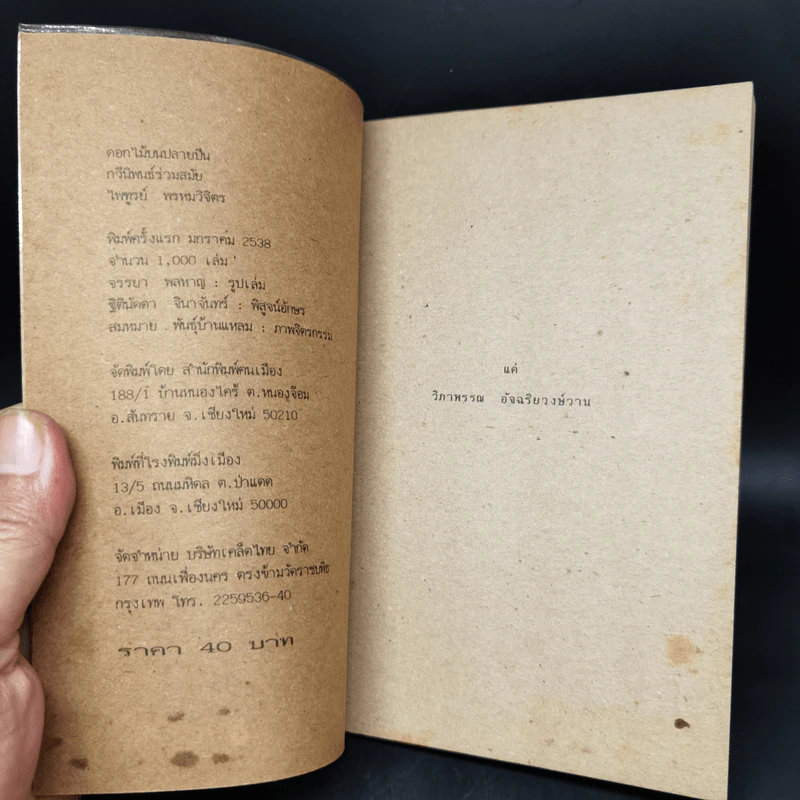 ดอกไม้บนปลายปืน
กวีนิพนธ์ร่วมสมัย
ไพฑูรย์ พรหมวิจิตร
พิมพ์ครั้งแรก มกราคม 2538
จำนวน 1,000 เล่ม
จรรยา พลหาญ : รูปเล่ม
ฐิตินัดดา จินาจันทร์ : พิสูจน์อักษร
สมหมาย พันธุ์บ้านแหลม : ภาพจิตรกรรม
จัดพิมพ์โดย สำนักพิมพ์คนเมือง
188/1 บ้านหนองไคร้ ต.หนองจ๊อม
อ.สันทราย จ.เชียงใหม่ 50210
พิมพ์ที่โรงพิมพ์มิ่งเมือง
13/5 ถนนมหิดล ต.ป่าแดด
อ.เมือง จ.เชียงใหม่ 50000
จัดจำหน่าย บริษัทเคล็ดไทย จำกัด
177 ถนนเฟื่องนคร ตรงข้ามวัดราชบพิธ
กรุงเทพ โทร. 2259536-40
ราคา 40 บาท
แด่
วิภาพรรณ อัจฉริยวงษ์วาน